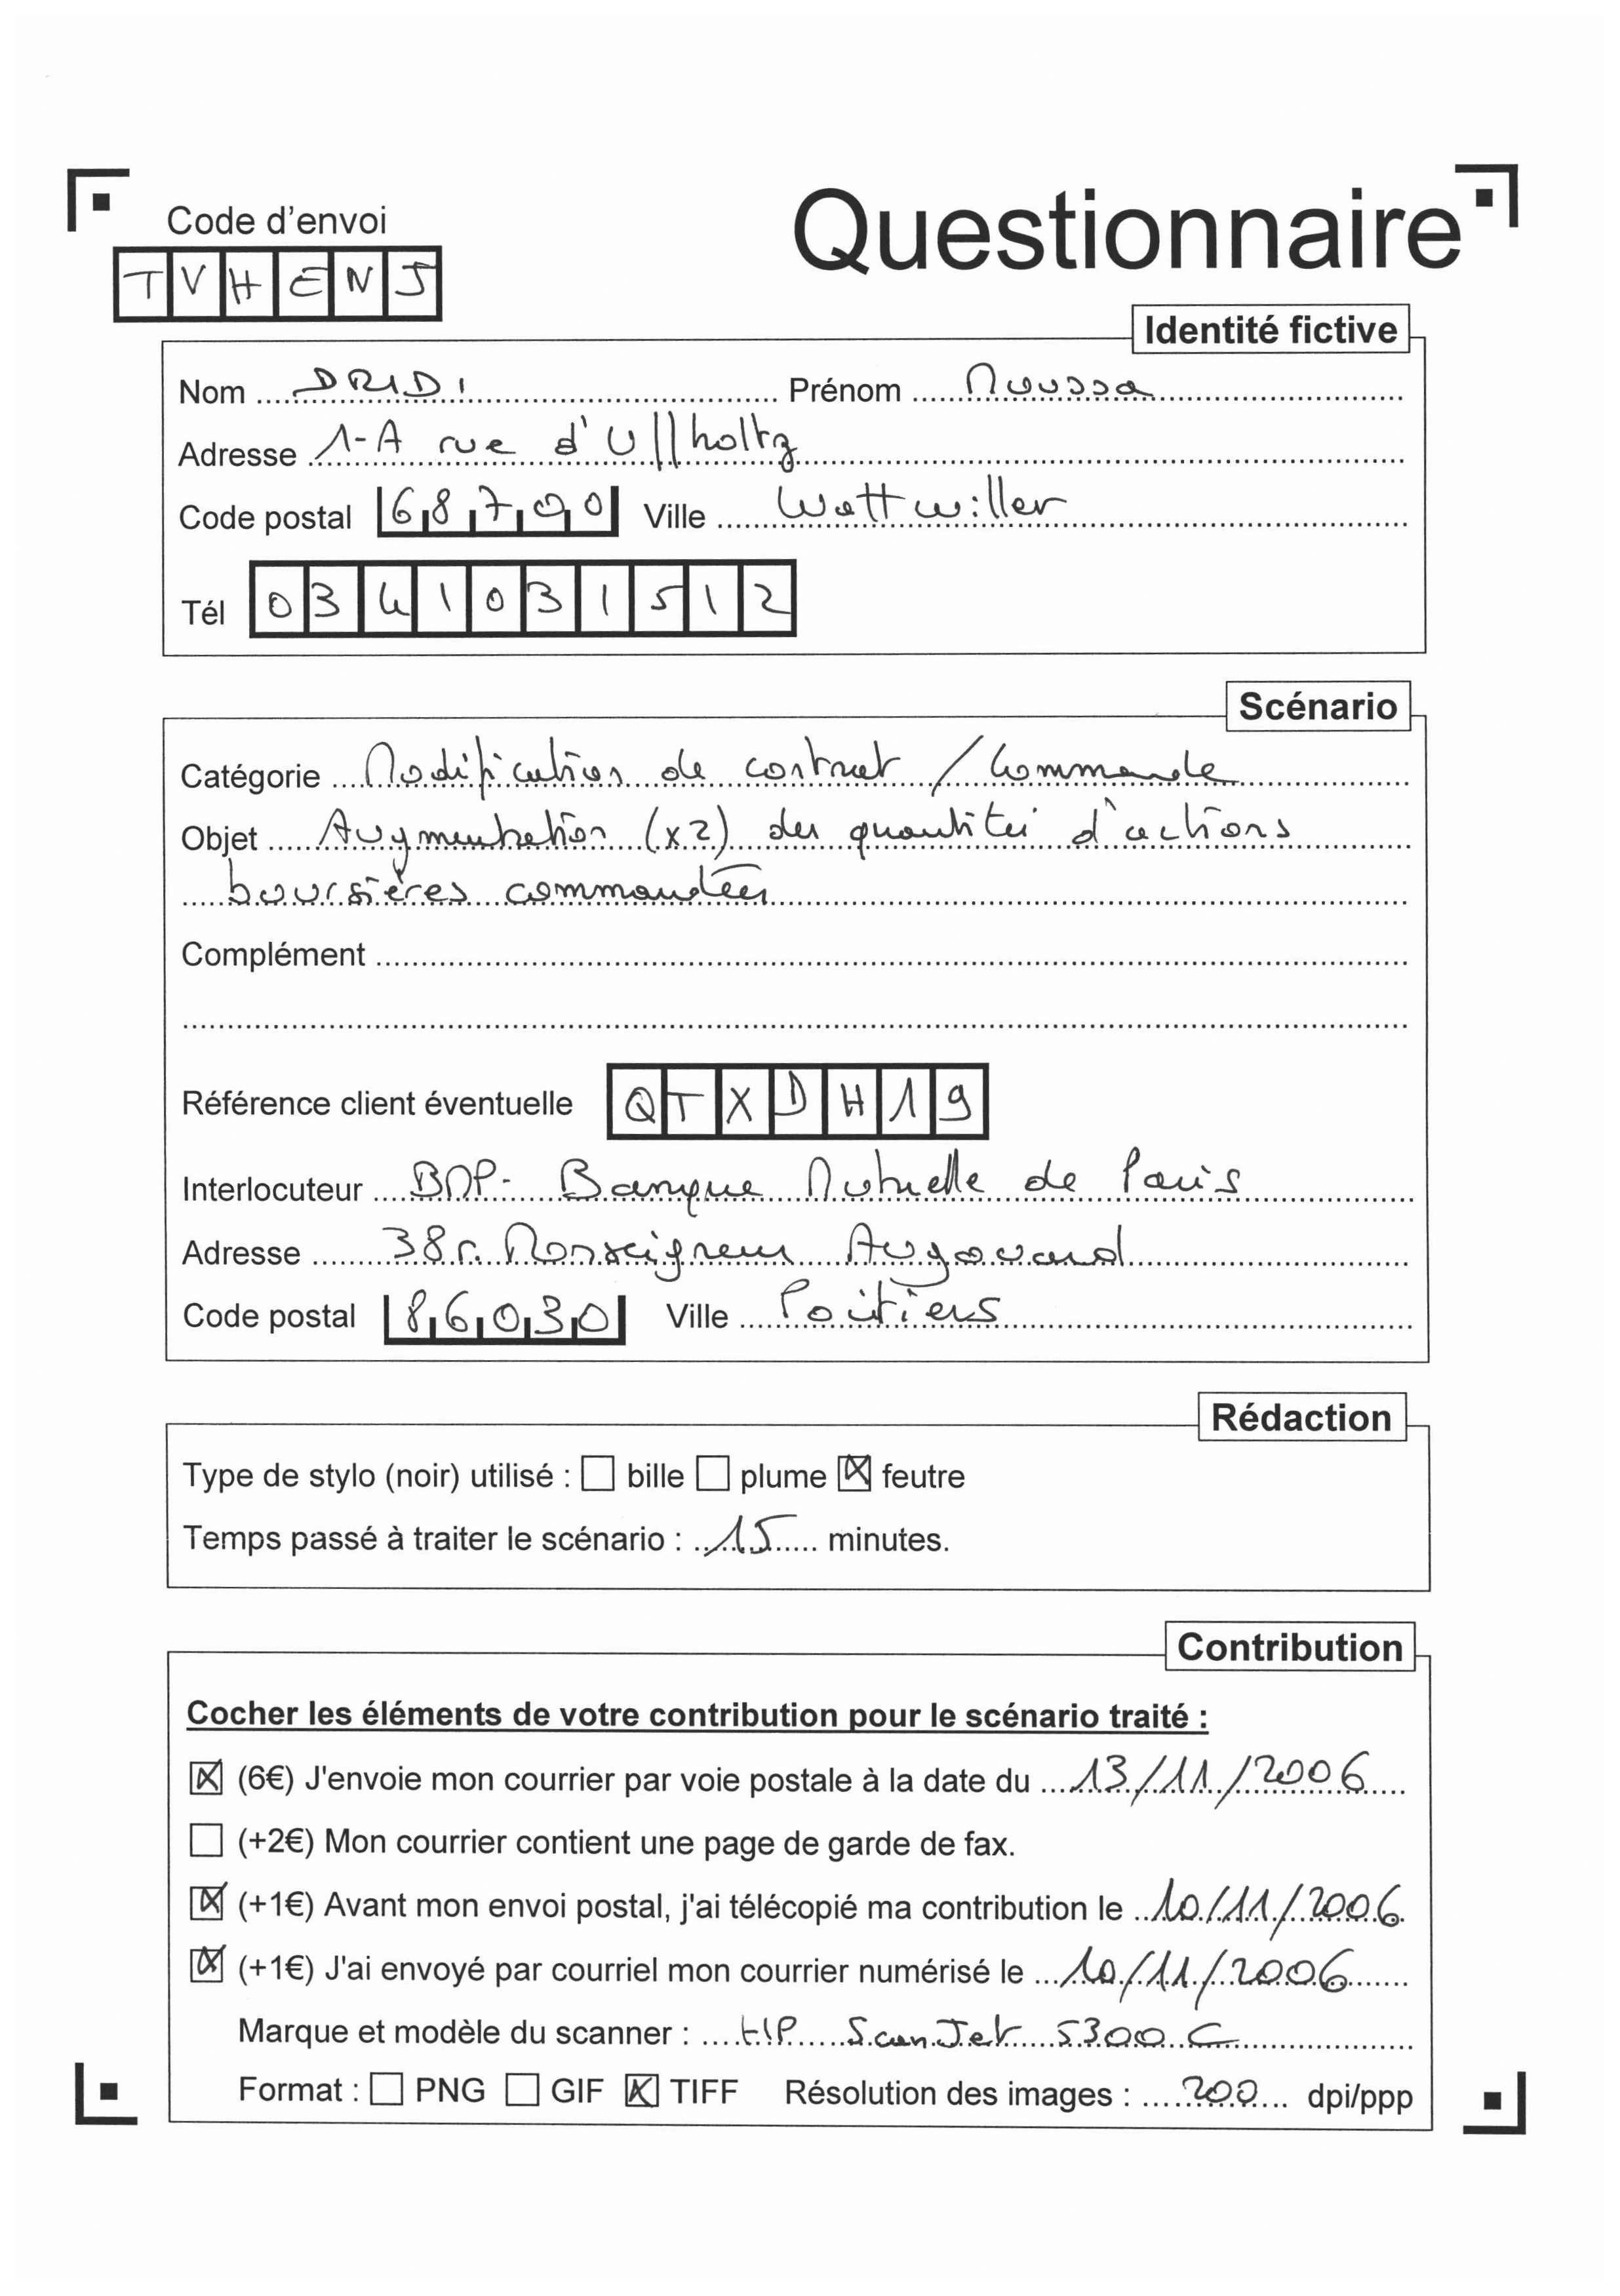 Code d'envoi
Questionnaire
TVHENJ
Identité fictive
Nom DRIDI Prénom Moussa
Adresse 1-A rue d'Ullholtz
Code postal 68700 Ville Wattwiller
Tél 0341031512
Scénario
Catégorie Modification de contrat / Commande
Objet Augmentation (x2) des quantités d'actions
boursières commandées
Complément
Référence client éventuelle QTXDH19
Interlocuteur BMP - Banque Mutuelle de Paris
Adresse 38 r. Monseigneur Augouard
Code postal 86030 Ville Poitiers
Rédaction
Type de stylo (noir) utilisé : bille plume feutre
Temps passé à traiter le scénario : 15 minutes.
Contribution
Cocher les éléments de votre contribution pour le scénario traité :
(6€) J'envoie mon courrier par voie postale à la date du 13/11/2006
(+2€) Mon courrier contient une page de garde de fax.
(+1€) Avant mon envoi postal, j'ai télécopié ma contribution le 10/11/2006
(+1€) J'ai envoyé par courriel mon courrier numérisé le 10/11/2006
Marque et modèle du scanner : HP ScanJet 5300 C
Format : PNG GIF TIFF Résolution des images : 200 dpi/ppp